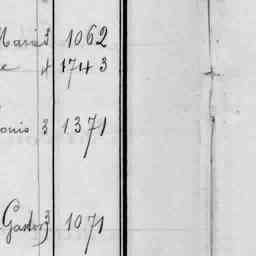 Maria 3 1062
e 4 1743
ouis 3 1371
Gaston 3 1071